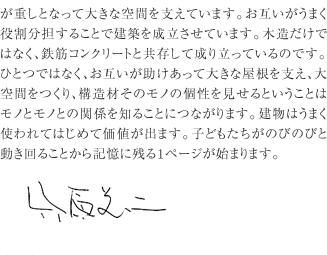 が重しとなって大きな空間を支えています。お互いがうまく
役割分担することで建築を成立させています。木造だけで
はなく、鉄筋コンクリートと共存して成り立っているのです。
ひとつではなく、お互いが助けあって大きな屋根を支え、大
空間をつくり、構造材そのモノの個性を見せるということは
モノとモノとの関係を知ることにつながります。建物はうまく
使われてはじめて価値が出ます。子どもたちがのびのびと
動き回ることから記憶に残る1ページが始まります。